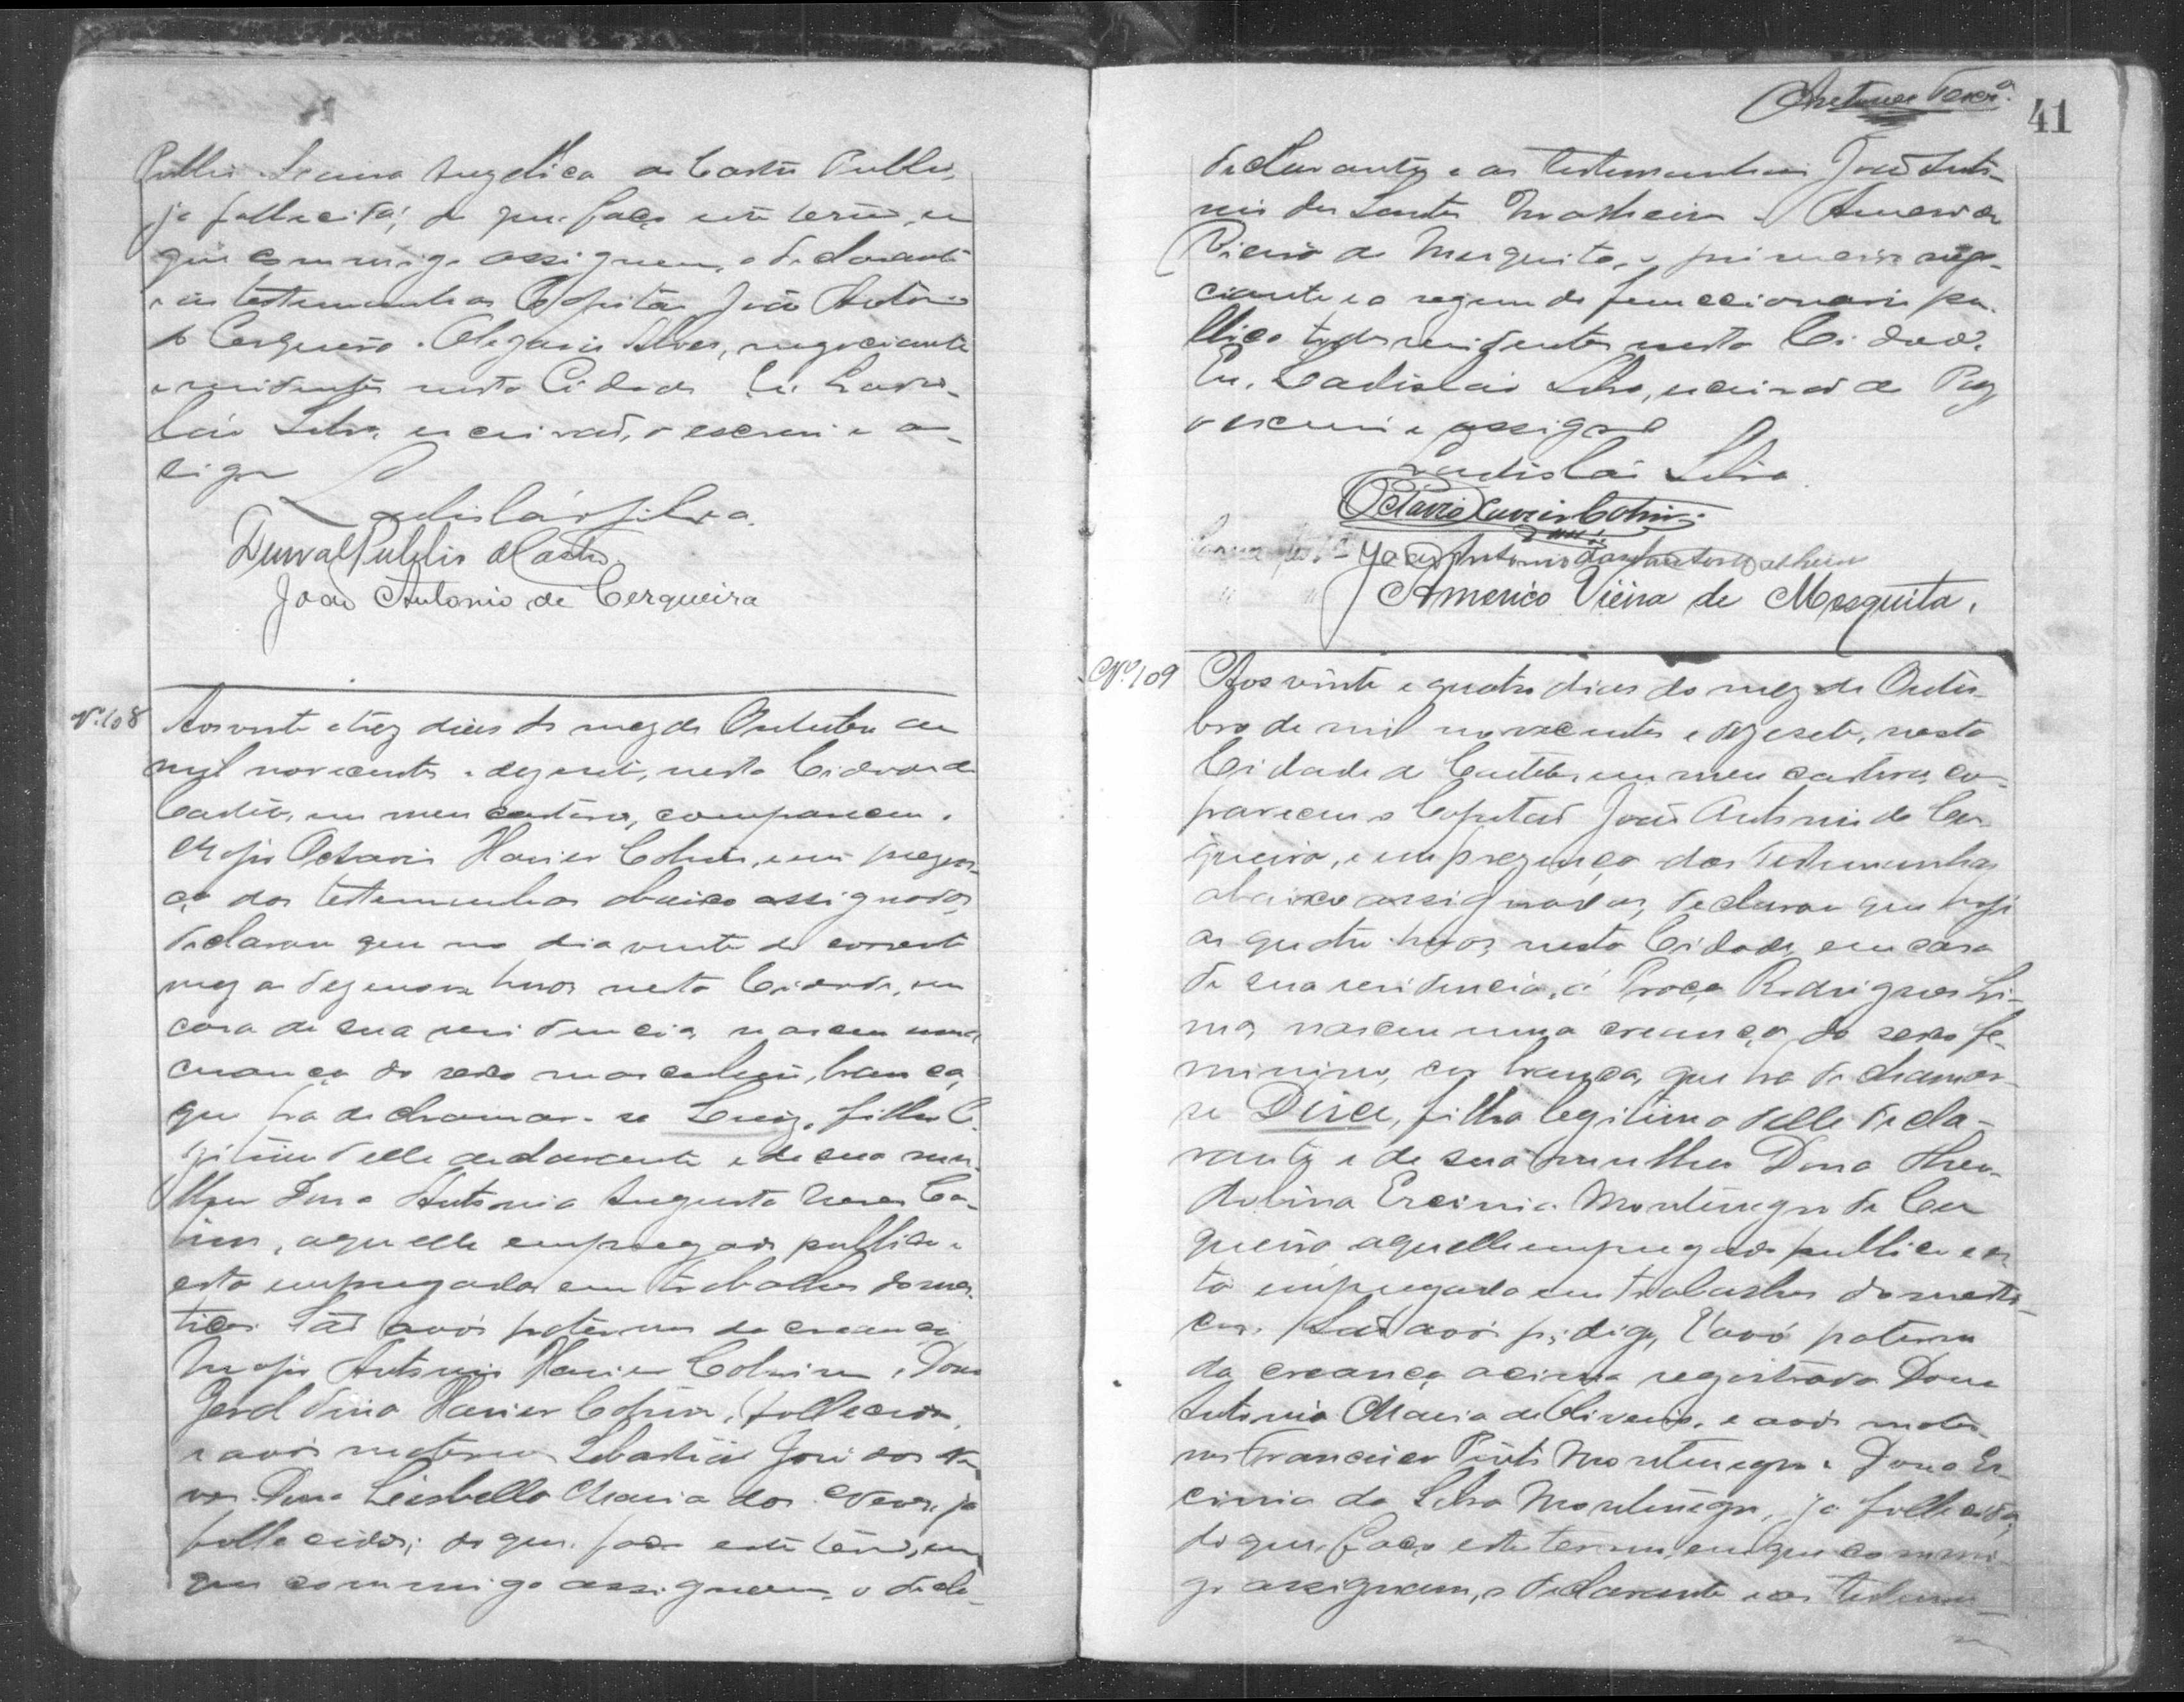 Publio e Leanna Angelica de Castro Publio,
já fallecida; do que faço este termo, em
que commigo assignam, o declarante
e as testemunhas Capitão João Antonio
de Cerqueira e Olegario Alves, negociante
e residentes nesta Cidade. Eu Ladis-
láo Silva, escrivão, o escrevi e as-
signo
Ladisláo Silva.
Durval Publio de Castro
João Antonio de Cerqueira
Nº 108
Aos vinte e trez dias do mez de Outubro de
mil novecentos e dezesete, nesta Cidade de
Caeteté, em meu cartorio, compareceu o
Major Octavio Xavier Cotrim, e em prezen-
ça das testemunhas abaixo assignadas,
declarou que no dia vinte do corrente
mez as dezenove horas nesta Cidade, em
casa de sua residencia, nasceu uma
creança do sexo masculino, branca,
que ha de chamar-se Luiz, filho le-
gitimo delle declarante e de sua mu-
lher Dona Antonia Augusta Neves Co-
trim, aquelle empregado publico e
esta empregada em trabalhos domes-
ticos. São avós paternos da creança
Major Antonio Xavier Cotrim e Dona
Geraldina Xavier Cotrim, fallecida,
e avós maternos Sebastião José das Ne-
ves e Dona Lisbella Maria das Neves, já
fallecidos; do que faço este termo, em
que commigo assignam, o decla-
41
declarante, e as testemunhas João Anto-
nio dos Santos Matheiro e Americo
Vieira de Mesquita, o primeiro nego-
ciante e o segundo funccionario pu-
blico todos residentes nesta Cidade.
Eu, Ladisláo Silva, escrivão de Paz
o escrevi e assigno
Ladisláo Silva
Octavio Xavier Cotrim
João Antonio dos Santos
Americo Vieira de Mesquita.
Nº 109
Aos vinte e quatro dias do mez de Outu-
bro de mil novecentos e dezesete, nesta
Cidade de Caeteté, em meu cartorio, com-
pareceu o Capitão João Antonio de Cer-
queira, e em prezença das testemunhas
abaixo assignadas, declarou que hoje
as quatro horas, nesta Cidade, em casa
de sua residencia, á Praça Rodrigues Li-
ma, nasceu uma creança do sexo fe-
minino, cor branca, que ha de chamar-
se Dirce, filha legitima delle decla-
rante e de sua mulher Dona
Ercinia Montenegro de Cer-
queira, aquelle empregado publico e es-
ta empregada em trabalhos domesti-
cos. São avós p, digo, É avó paterna
da creança acima registrada Dona
Antonia Maria de Oliveira, e avós mater-
nos Francisco Pinto Montenegro e Dona Er-
cinia da Silva Montenegro, já fallecida,
do que faço este termo, em que commi-
go assignam, o declarante e as testemu-